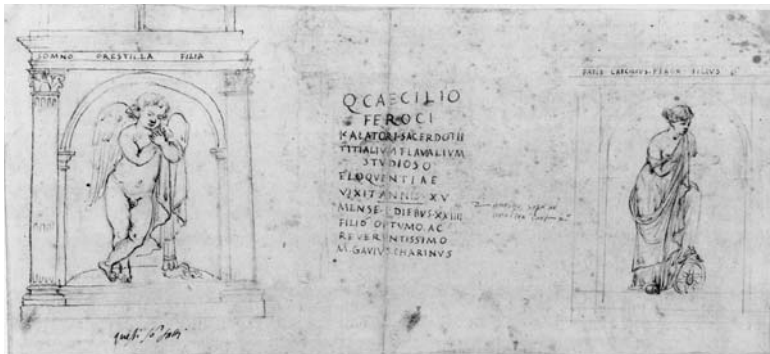 SOMNO ORESTILLA FILIA
Q CAECILIO
FEROCI
KALATORI SACERDOTII
TITIALIVM FLAVIALIVM
STVDIOSO
ELOQVENTIAE
VIXIT ANNO XV
MENSE I DIEBVS XXIIII
FILIO OPTVMO AC
REVERENTISSIMO
M GAVIVS CHARINVS
FATIS CAECILIVS FEROX FILIVS